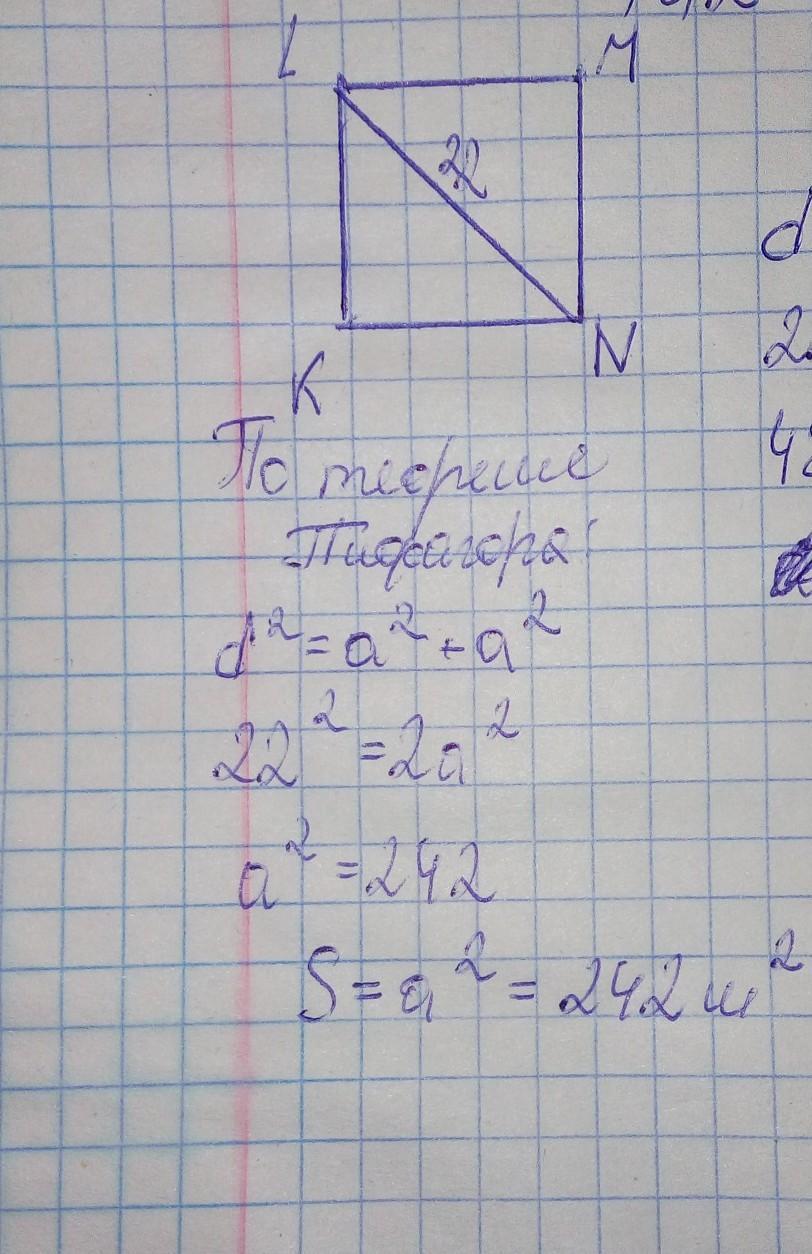 L M
22
K N
По теореме
Пифагора:
d² = a² + a²
22² = 2a²
a² = 242
S = a² = 242 м²
d
2
42